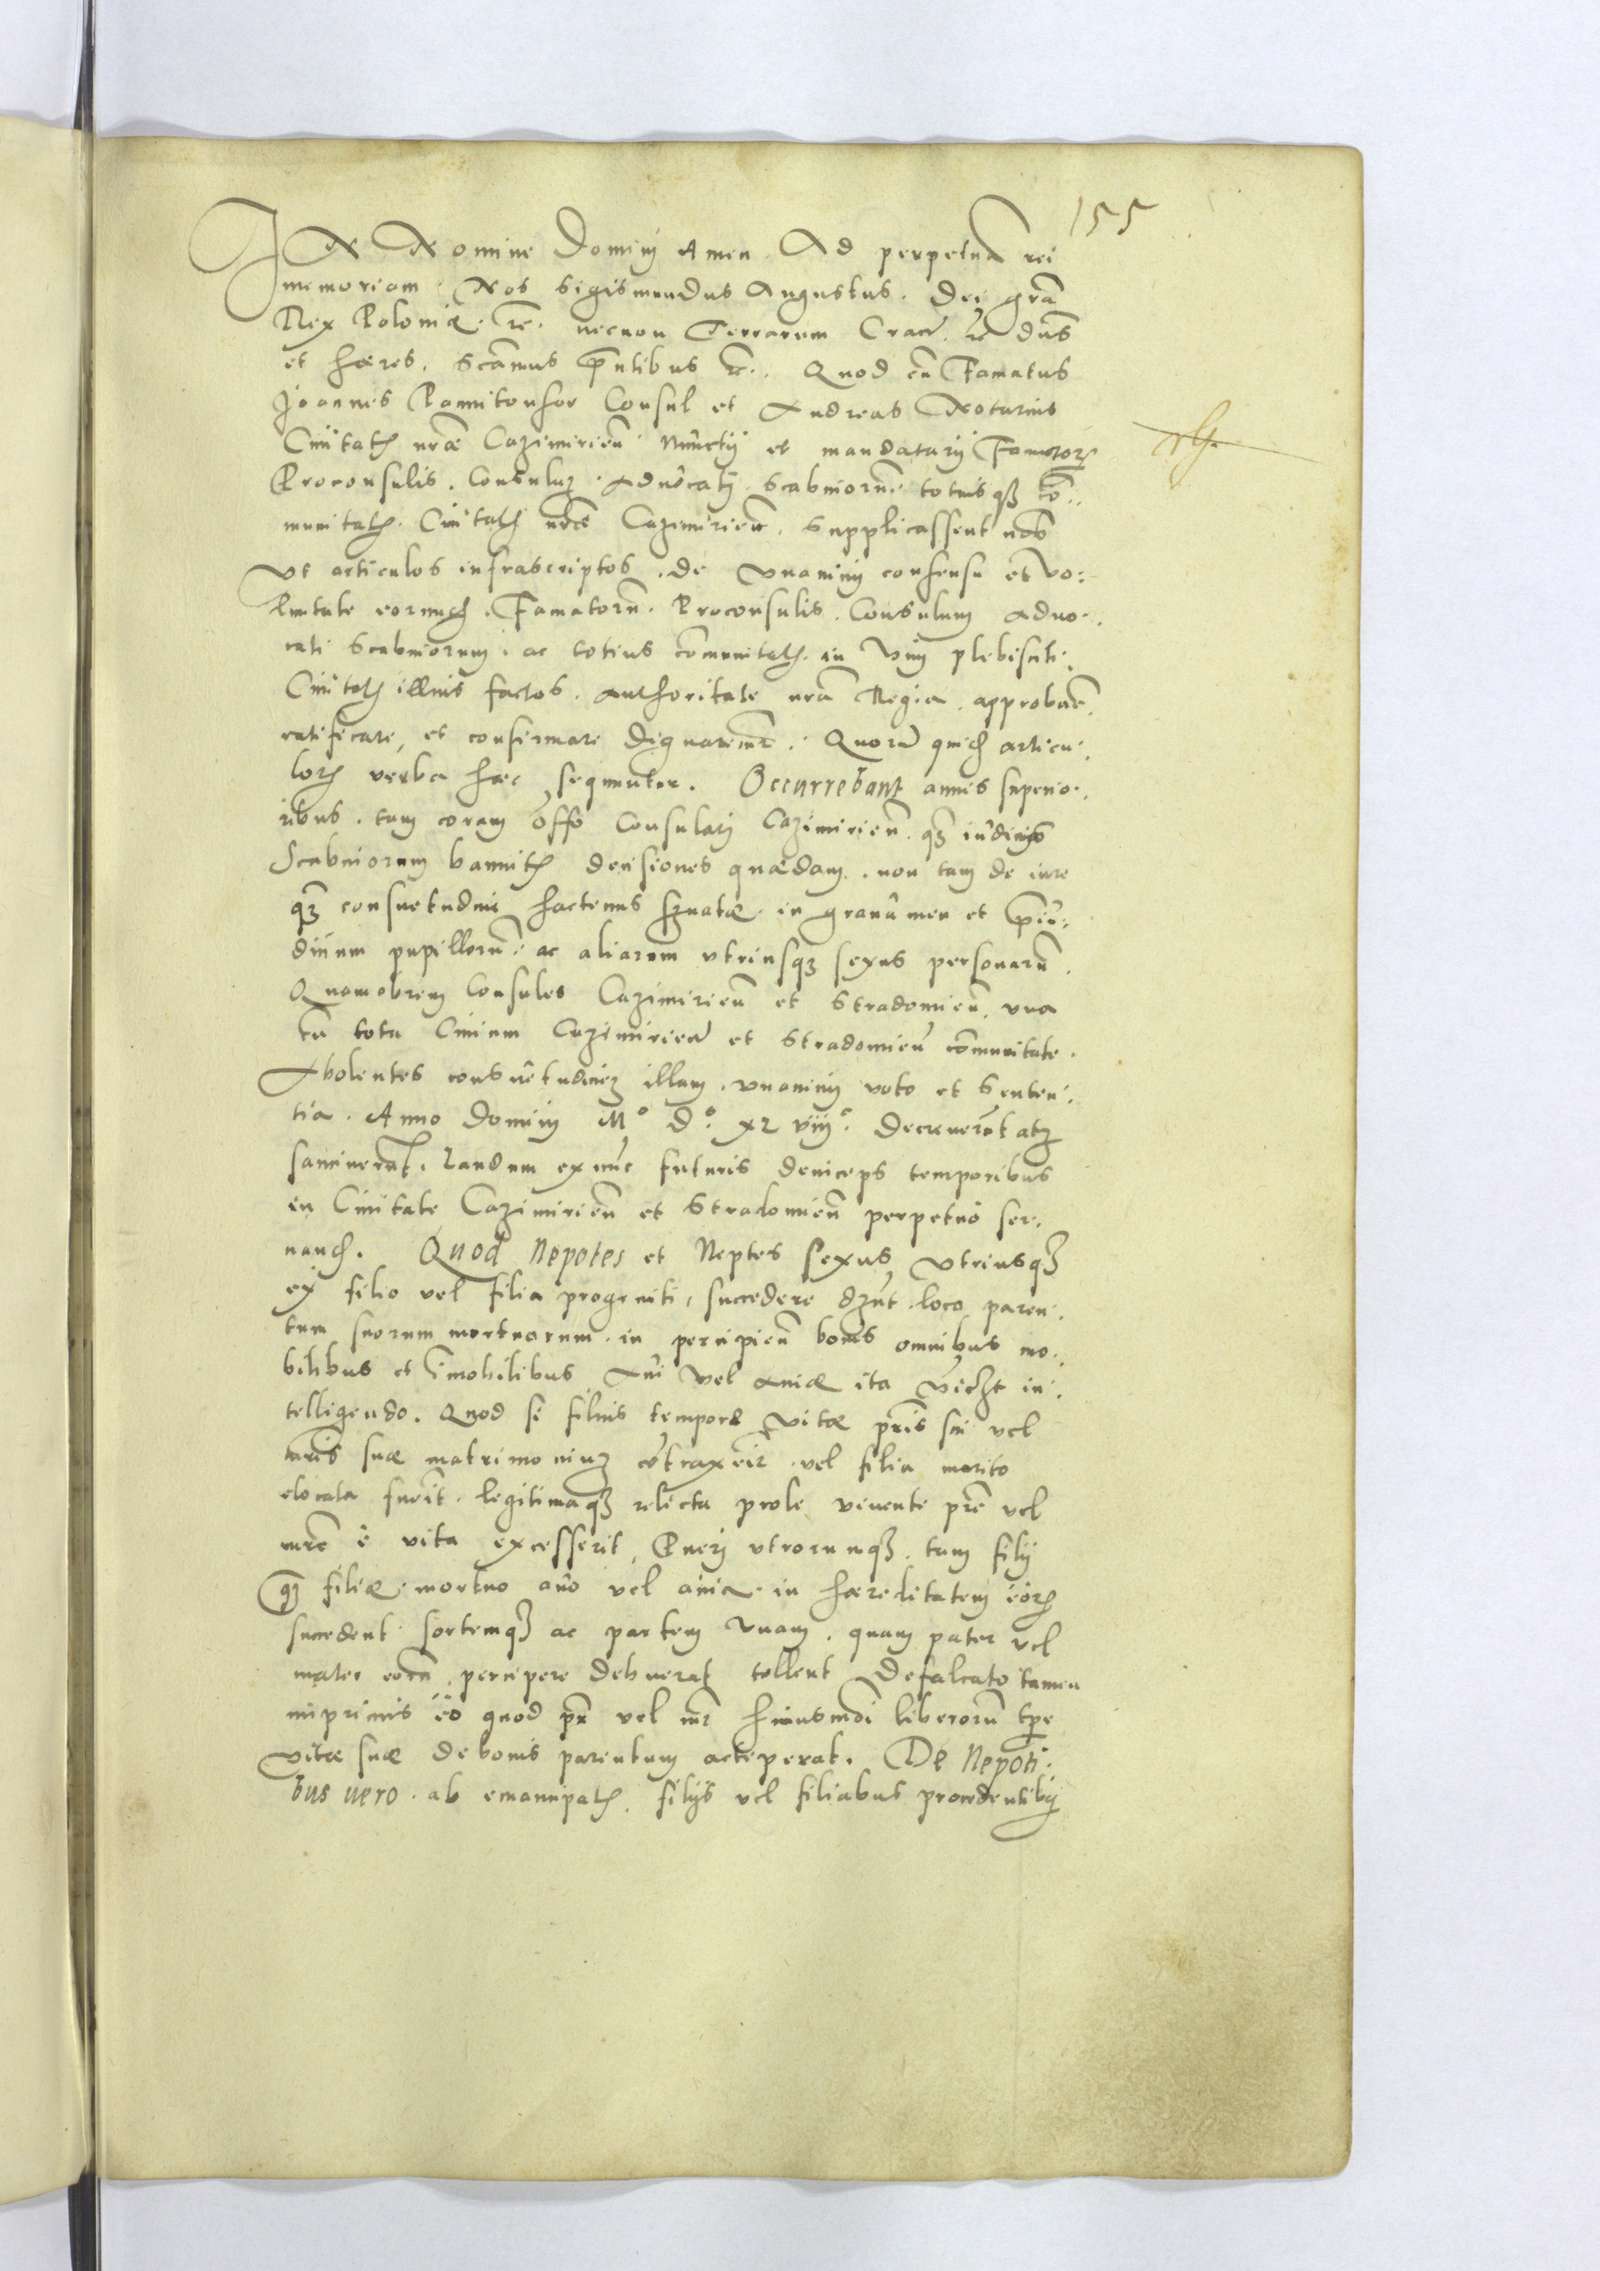 155
IN Nomine Domini Amen. Ad perpetuã rei
memoriam. Nos Sigismundus Augustus. Dei grã
Rex Poloniæ. etc. necnon Terrarum Crac. etc dñs
et hæres. Scãmus pñtibus etc. Quod cũ Famatus
Joannes Pannitonsor Consul et Andreas Notarius
Civitatis nrãe Cazimirieñ. Nunctii et mandatarij Famatorum
Proconsulis. Consulum. Advocati. Scabinorum. totiusq3 Co..
munitatis. Civitatis nrãe Cazimirieñ. Supplicassent nobis
Ut articulos infrascriptos. de unanimi consensu et vo:
luntate eorundem. Famatorũ. Proconsulis. Consulum Advo..
cati Scabinorum. ac totius cõmunitatis. in vim plebisciti.
Civitatis illius factos. authoritate nrã Regia. approbare.
ratificare, et confirmare dignaremur. Quorum quidem articu:
lorum verba hæc sequuntur. Occurrebant annis superio..
ribus. tam coram offo Consulari Cazimirieñ. q3 iudicio
Scabinorum bannitis decisiones quædam. non tam de iure
q3 consuetudine hactenus servatæ. in gravamen et præiu:
dicium pupillorũ. ac aliarum utriusq3 sexus personarũ.
Quamobrem Consules Cazimirieñ et Stradomieñ. una
cũ tota Civium Cazimirieñ et Stradomieñ cõmunitate.
Abolentes consuetudinem illam. unanimi voto et Senten:
tia. Anno Domini M° D° xl viij° Decreverunt atq3
sancinerunt. Laudum ex nunc futuris deinceps temporibus
in Civitate Cazimirieñ et Stradomieñ perpetuo ser:
vand. Quod Nepotes et Neptes sexus utriusq3
ex filio vel filia progeniti, succedere debent. loco paren:
tum suorum mortuorum. in percipieñ bonis omnibus mo:
bilibus et immobilibus Avi vel Aviæ ita videlicet in:
telligendo. Quod si filius tempore vitæ pris sui vel
mris suæ matrimonium cõtraxerit. vel filia marito
elocata fuerit. legitimaq3 relicta prole vivente pre vel
mre e vita excesserit, Pueri utrorumq3. tam filij
q3 filiæ. mortuo avo vel avia. in hæreditatem eorum
succedent sortemq3 ac partem unam. quam pater vel
mater eorũ. percipere debuerat tollent Defalcato tamen
inprimis eo quod pr vel mr huiusmodi liberorũ tpe
vitæ suæ de bonis parentum acceperat. De Nepoti:
bus vero. ab emancipatis. filijs vel filiabus procedentibus